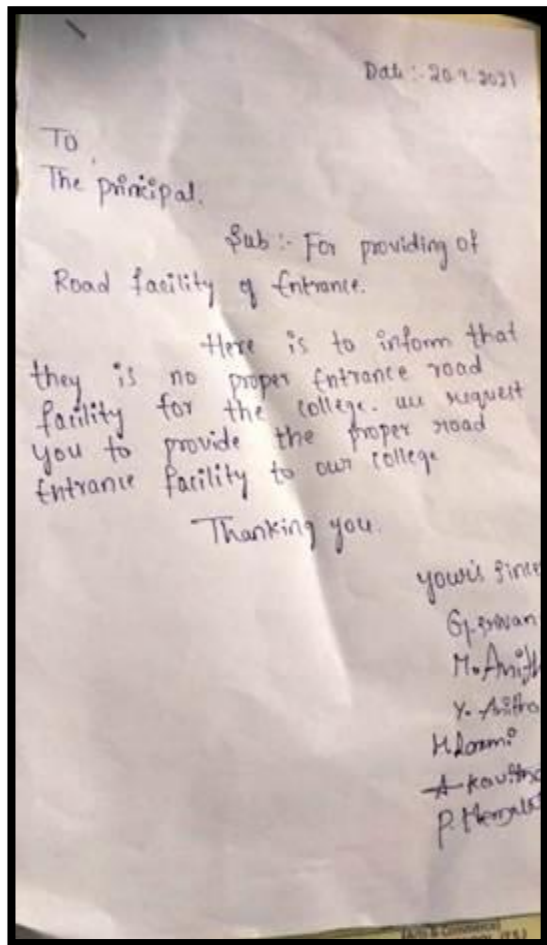 Date :- 20.9.2021
To
The principal.
Sub :- For providing of
Road facility of Entrance.
Here is to inform that
they is no proper Entrance road
facility for the college. we request
you to provide the proper road
Entrance facility to our college
Thanking you.
your's Since
M. Anith
Y. Anitha
H. Laxmi
A Kavitha
(Arts & Commerce)